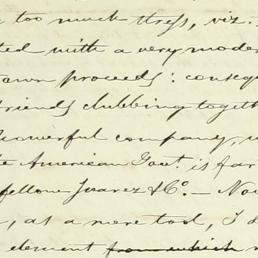 too much stress, viz.
ted with a very moder
own proceeds: conseq
friends clubbing togeth
powerful company, w
te American Govt. is far
fellows Juarez & Co. — No
, as a mere tool, I d
element from which